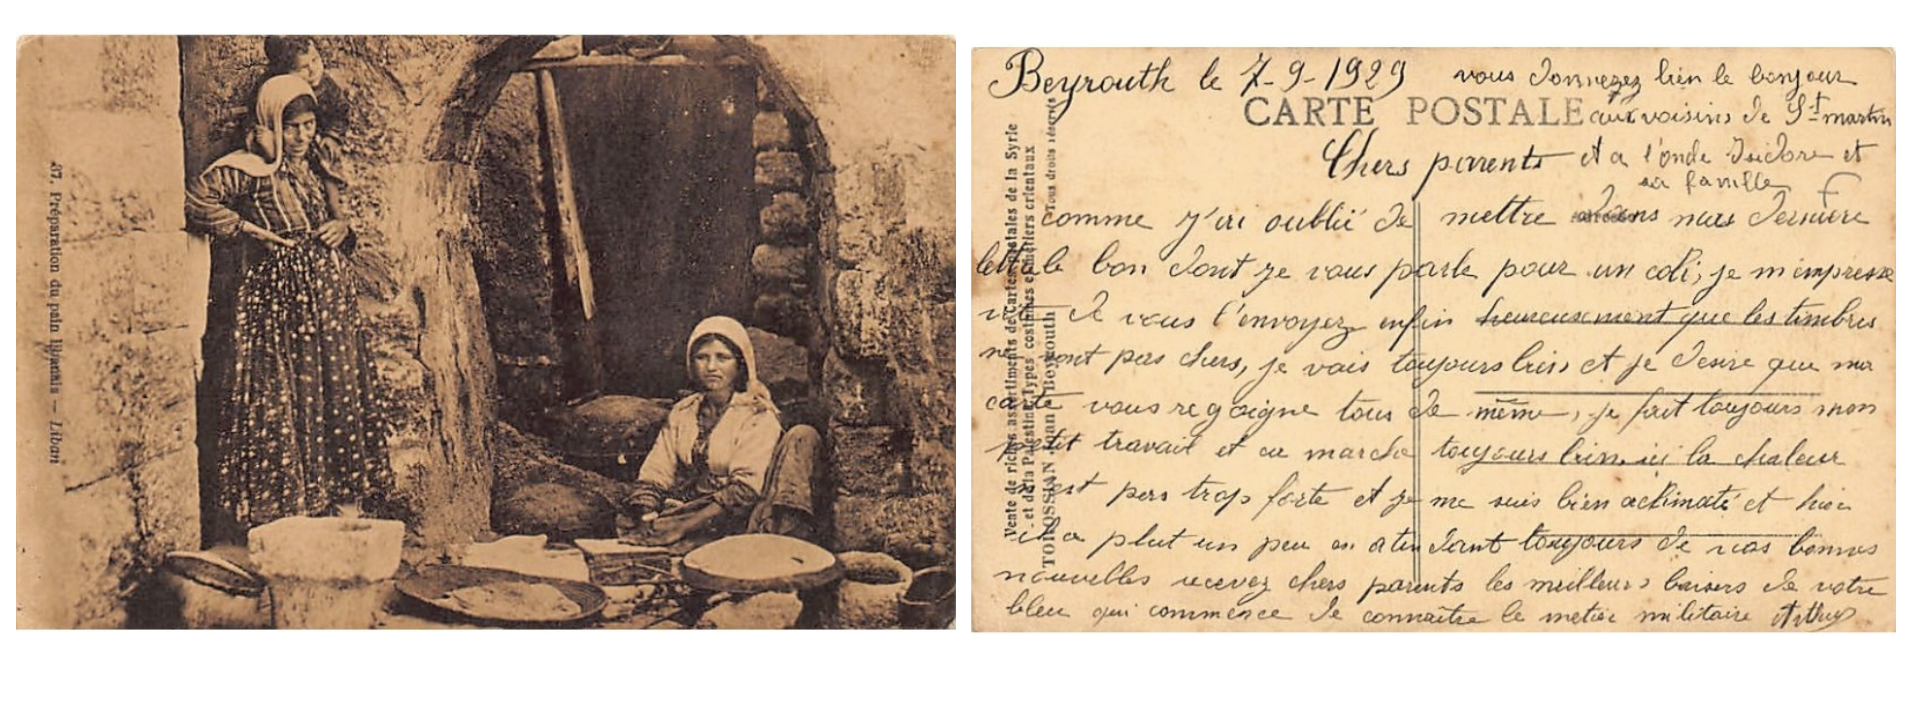 57. Préparation du pain libanais — Liban
Beyrouth le 7-9-1929
vous donnerez bien le bonjour
aux voisins de St martin
et a l'oncle Isidore et
sa famille
CARTE POSTALE
Vente de riches assortiments de Cartes Postales de la Syrie
et de la Palestine, Types costumes et métiers orientaux
TOROSSIAN Jean, Beyrouth (Tous droits réservés)
Chers parents
comme j'ai oublié de mettre dans mas dernière
lettre le bon dont je vous parle pour un coli, je m'empresse
de vous l'envoyez enfin heureusement que les timbres
ne sont pas chers, je vais toujours bien et je desire que ma
carte vous regoigne tous de même, je fait toujours mon
petit travail et ca marche toujours bien, ici la chaleur
est pas trop forte et je me suis bien aclimaté et hier
il a plut un peu en atendant toujours de vos bonnes
nouvelles recevez chers parents les meilleurs baisers de votre
bleu qui commence de connaître le metier militaire Arthur